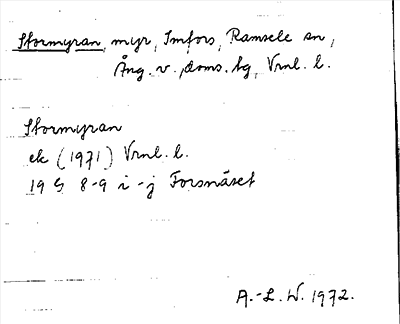 Stormyran, myr, Imfors, Ramsele sn,
Ång. v. doms. tg, Vrnl. l.
Stormyran
ek (1971) Vrnl. l.
19 G 8-9 i-j Forsnäset
A.-L. W. 1972.